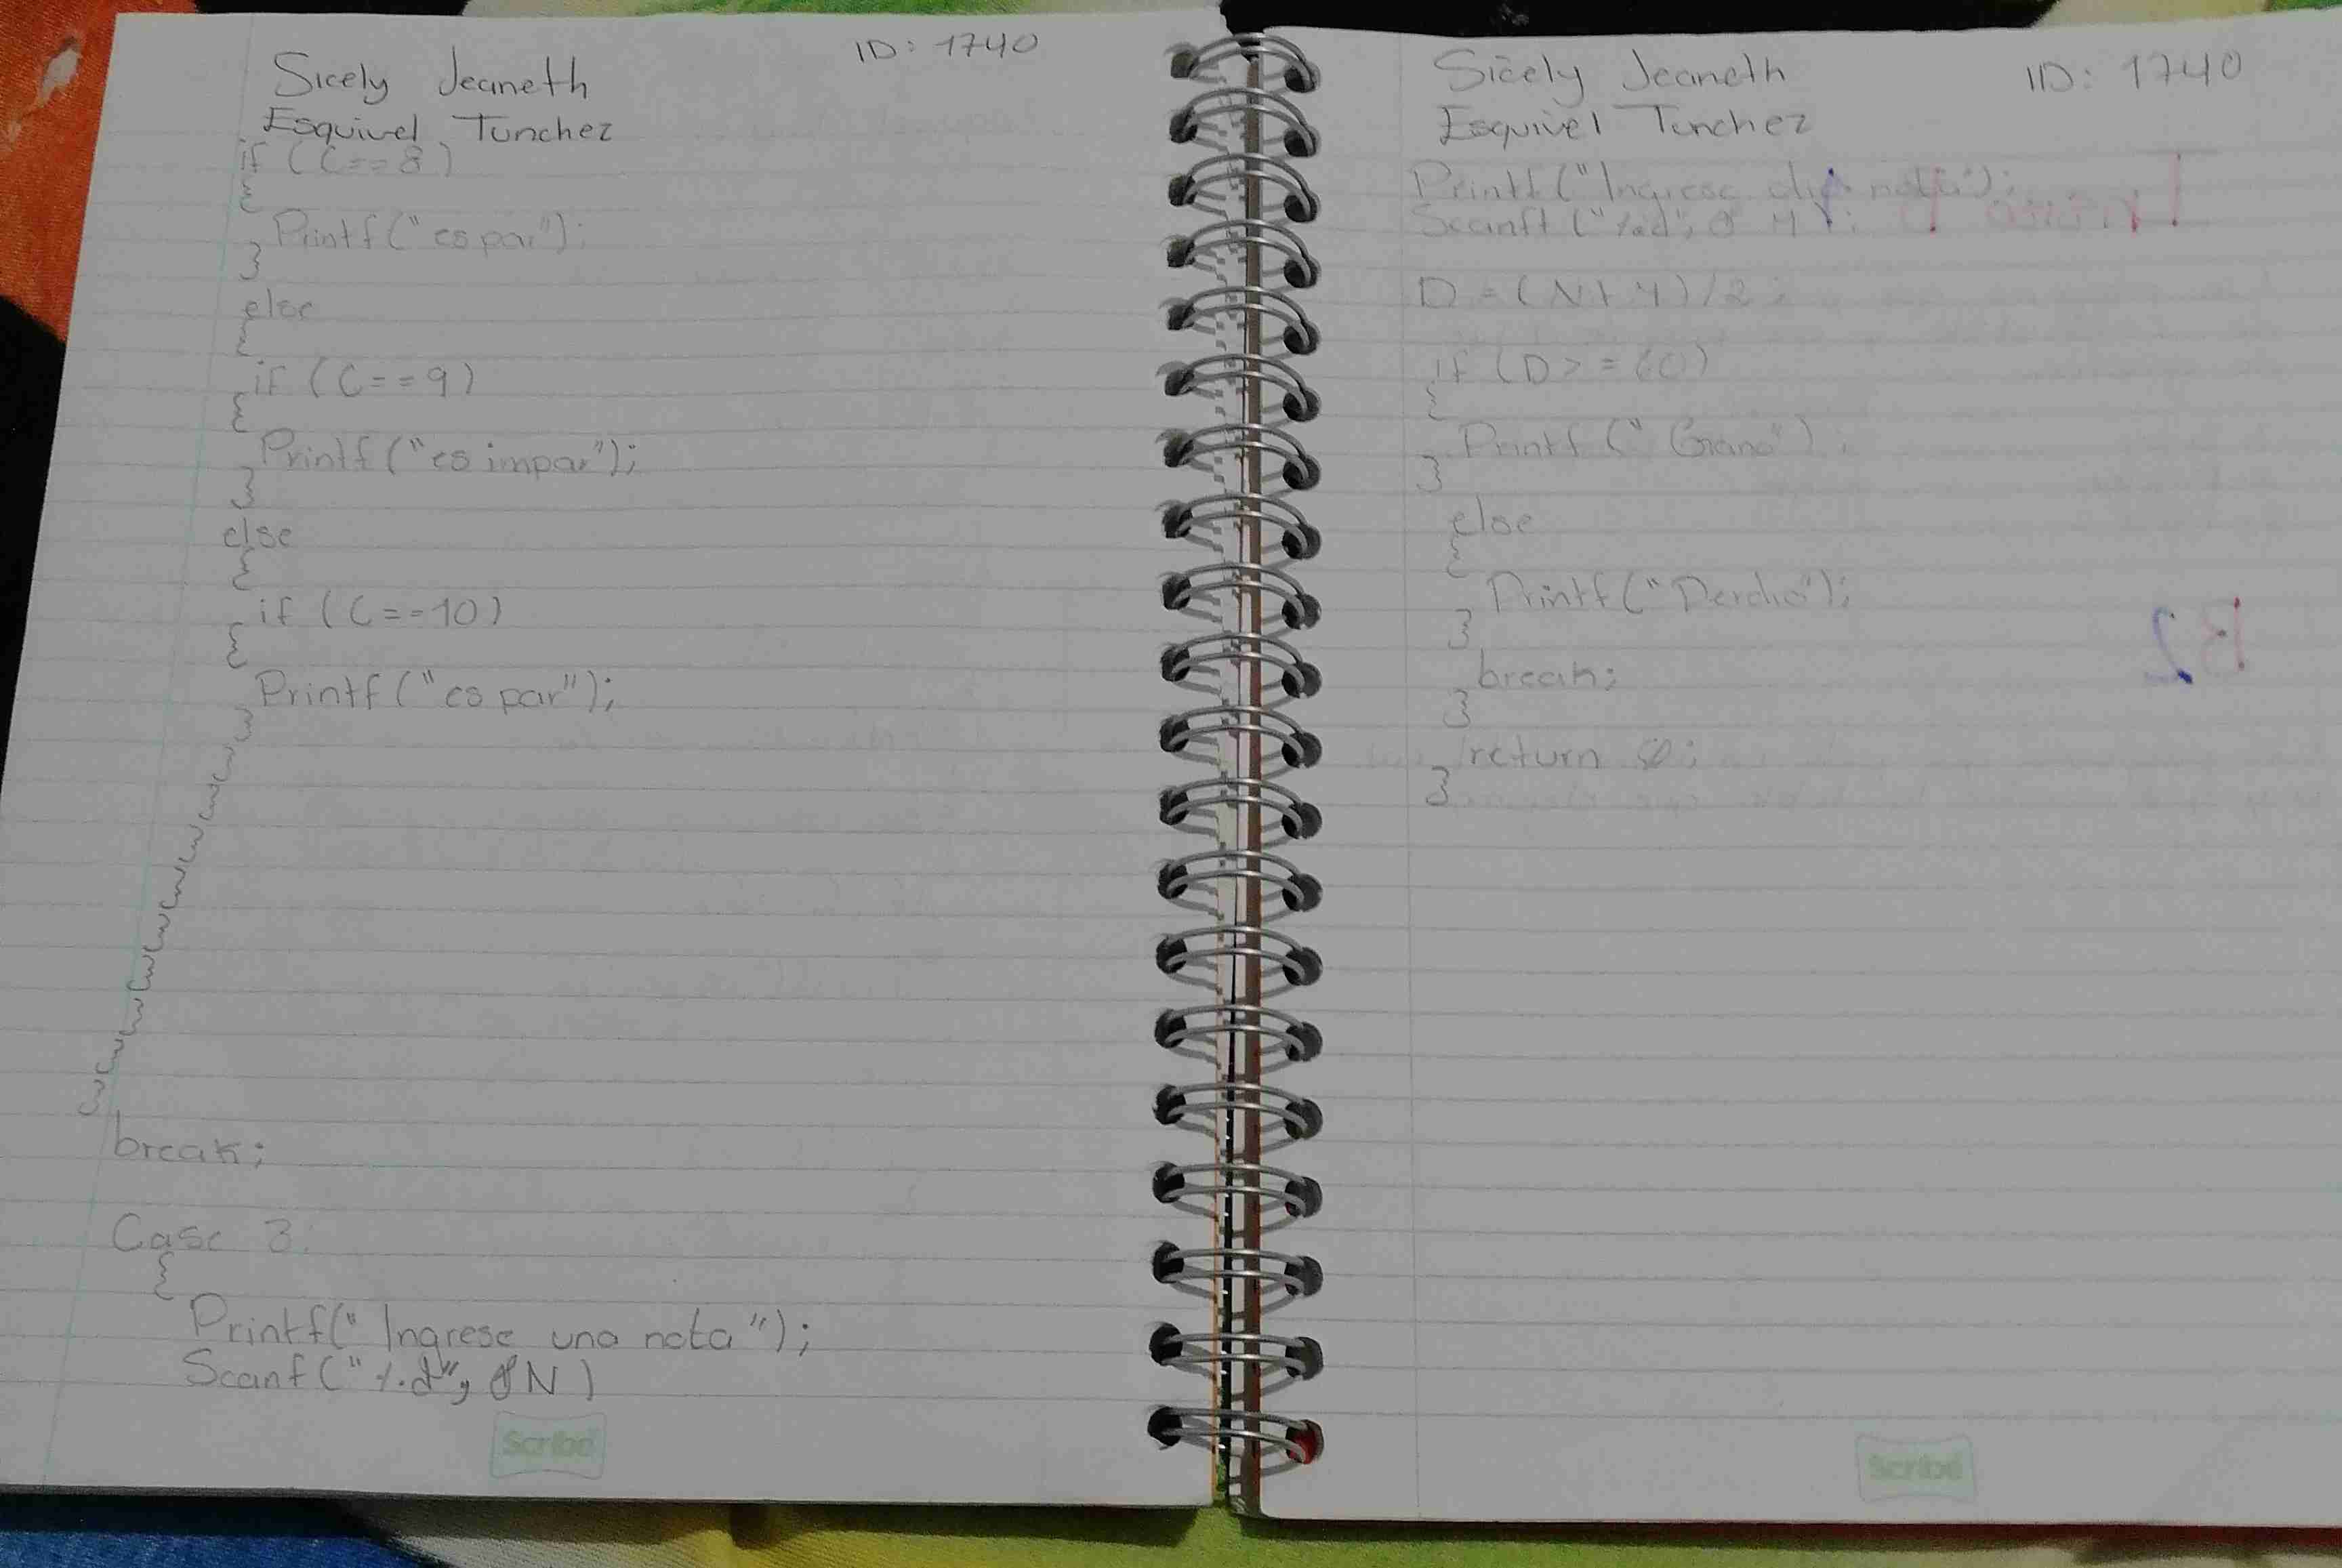 Sicely Jeaneth ID: 1740
Esquivel Tunchez
if (C==8)
{
Printf("es par");
}
else
{
if (C==9)
{
Printf("es impar");
}
else
{
if (C==10)
{
Printf("es par");
}
break;
Case 3:
{
Printf("Ingrese una nota");
Scanf("%d", &N)
Scribe
Sicely Jeaneth ID: 1740
Esquivel Tunchez
Printf("Ingrese nota");
Scanft ("%d", & Y);
D = (N+Y)/2;
if (D>=60)
{
Printf("Gano");
}
else
{
Printf("Perdio");
}
break;
}
return 0;
}
B2
Scribe